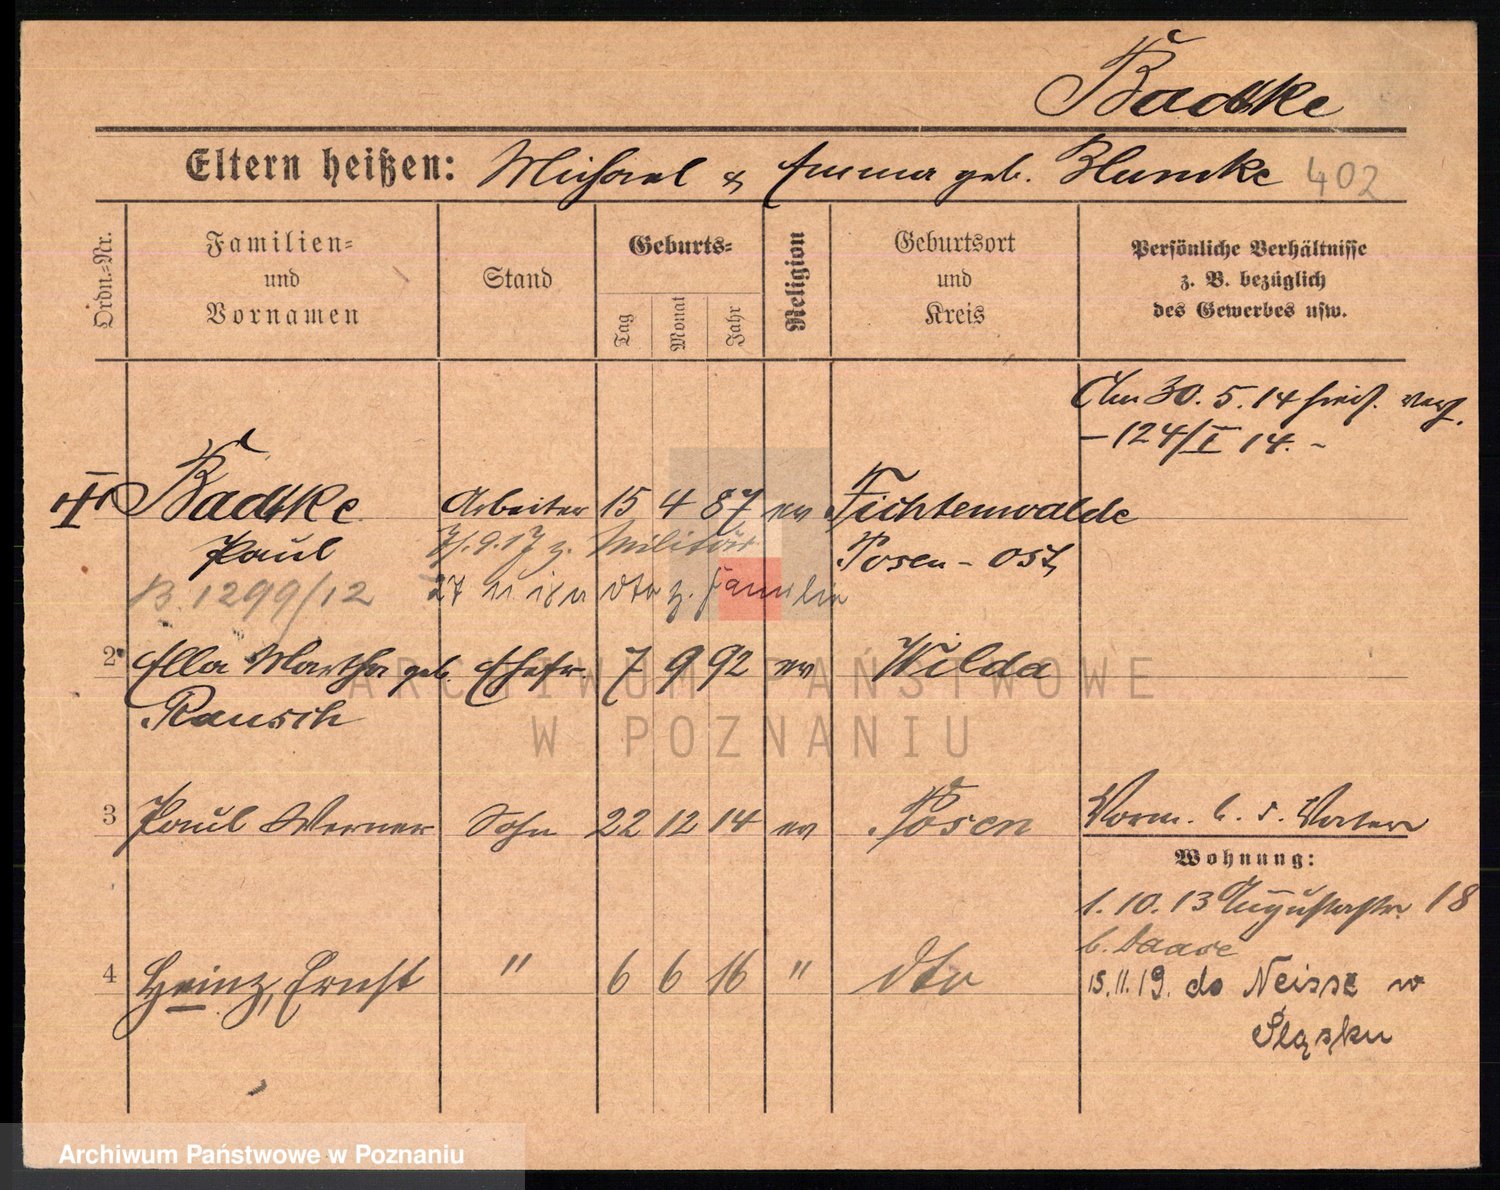 Badtke
Eltern heißen: Michael & Emma geb. Blumke 402
Ordn.=Nr.
Familien=
und
Vornamen
Stand
Geburts=
Tag
Monat
Jahr
Religion
Geburtsort
und
Kreis
Persönliche Verhältnisse
z. B. bezüglich
des Gewerbes usw.
Am 30. 5. 14
– 124/I 14. –
Badtke Arbeiter 15 4 87 ev Fichtenwalde
Paul 7/.9.17 z. Militär Posen – Ost
B. 1299/12 27 dto z. Familie
2 Ella Martha geb. Ehefr. 7 9 92 ev Wilda
Rausch
3 Paul Werner Sohn 22 12 14 ev Posen Vorm. b. d. Vater
Wohnung:
1. 10. 13 Augustastr. 18
b. Daase
4 Heinz, Ernst " 6 6 16 " dto
15. 11. 19. do Neisse w
Śląsku
ARCHIWUM PAŃSTWOWE
W POZNANIU
Archiwum Państwowe w Poznaniu